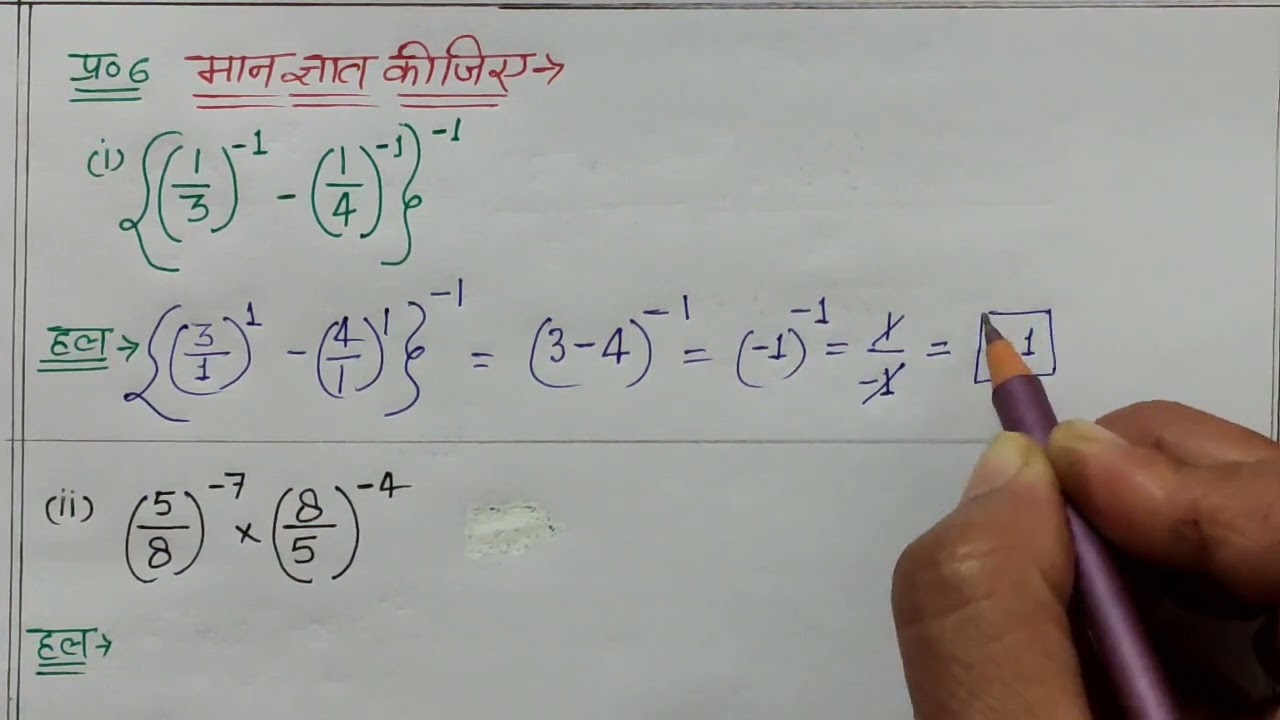 प्र०6 मान ज्ञात कीजिए→
(i) {(1/3)^-1 - (1/4)^-1}^-1
हल→ {(3/1)^1 - (4/1)^1}^-1 = (3-4)^-1 = (-1)^-1 = 1/-1 = 1
(ii) (5/8)^-7 × (8/5)^-4
हल→